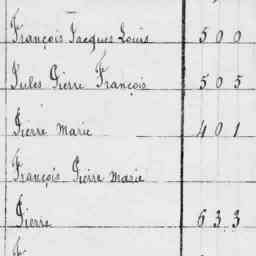 François Jacques Louis 500
Jules Pierre François 505
Pierre Marie 401
François Pierre Marie
Pierre 633